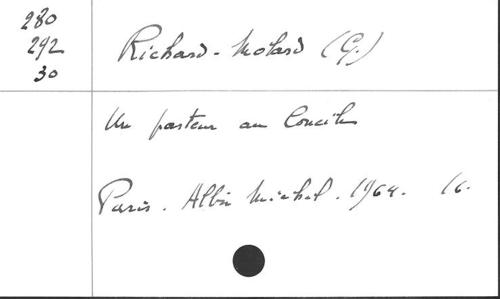 280
292
30
Richard-Molard (G.)
Un pasteur au Concile
Paris. Albin Michel. 1964. 16.